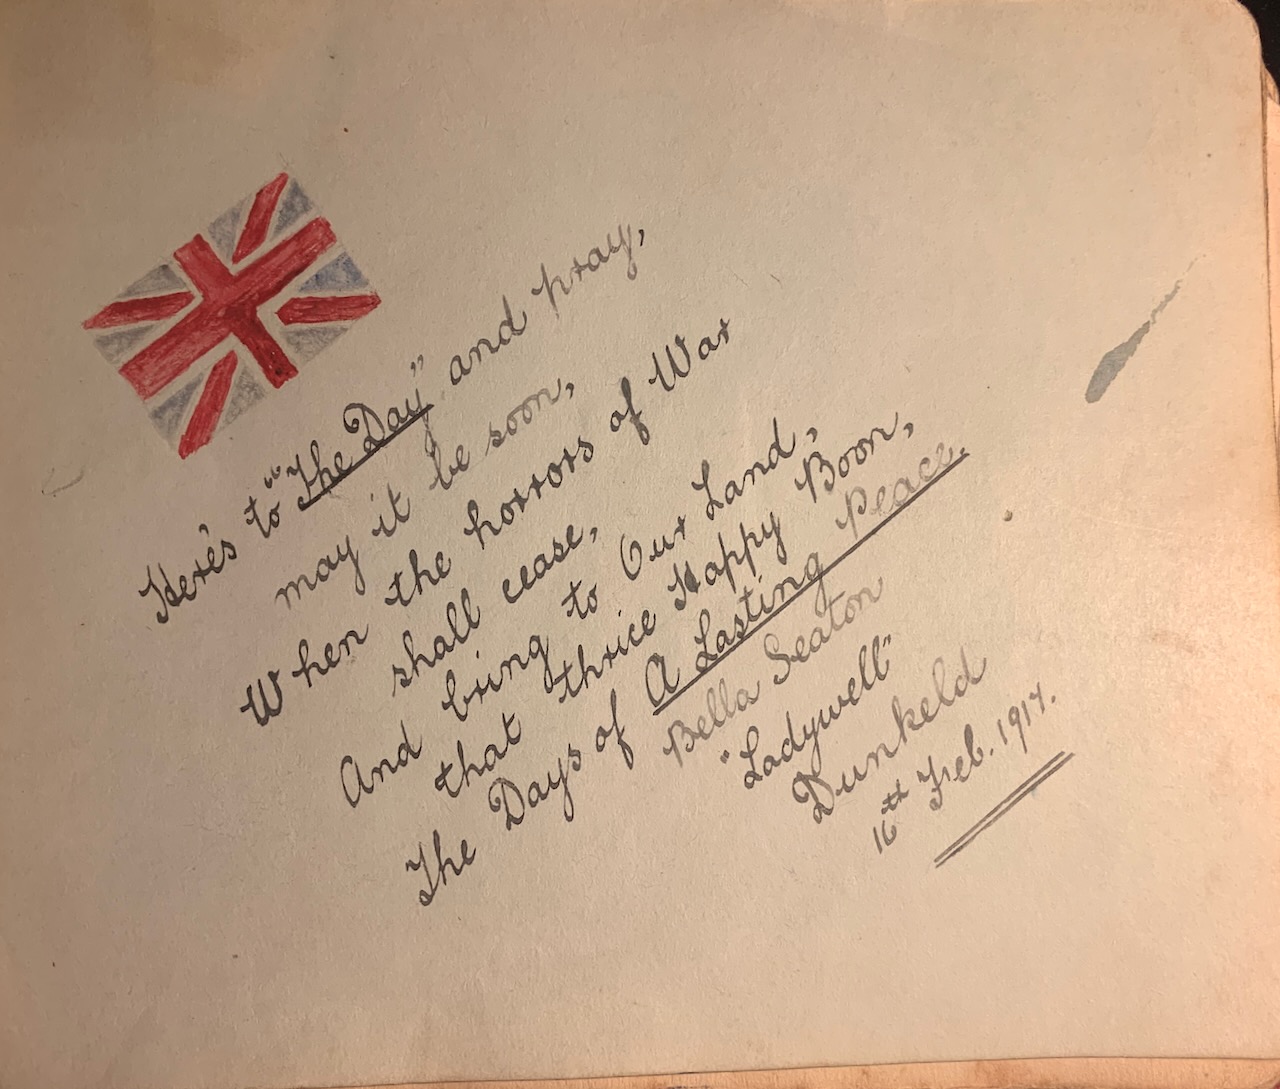 Here's to "The Day" and pray,
may it be soon,
When the horrors of War
shall cease,
And bring to Our Land,
that thrice Happy Boon,
The Days of A Lasting Peace.
Bella Seaton
"Ladywell"
Dunkeld
16th Feb. 1917.